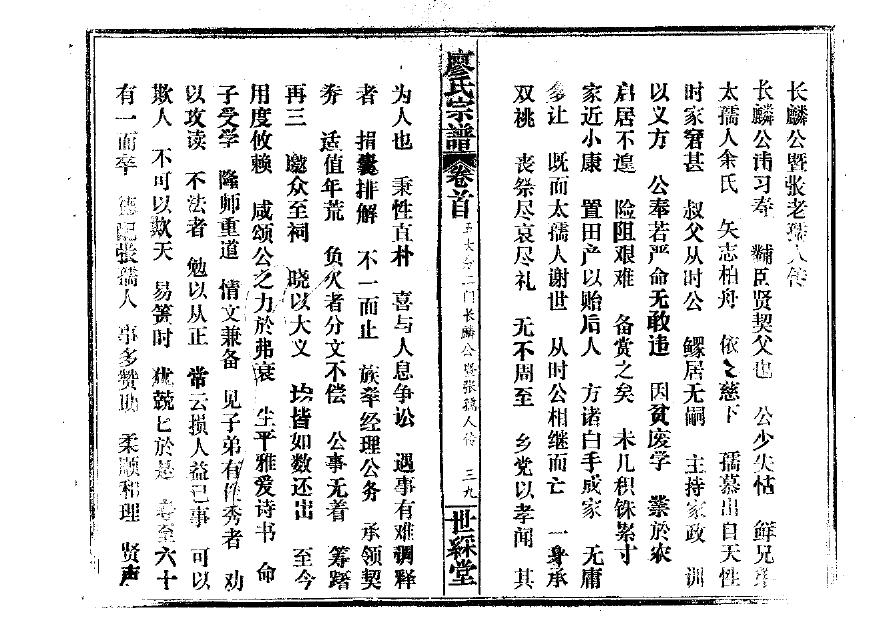 长麟公暨张老孺人传
长麟公讳习奉 辅臣贤契父也 公少失怙 鲜兄弟
太孺人余氏 矢志柏舟 依之慈下 孺慕出自天性
时家窘甚 叔父从时公 鳏居无嗣 主持家政 训
以义方 公奉若严命无敢违 因贫废学 业於农
启居不遑 险阻艰难 备赏之矣 未几积铢累寸
家近小康 置田产以贻后人 方诸白手成家 无庸
多让 既而太孺人谢世 从时公相继而亡 一身承
双祧 丧祭尽哀尽礼 无不周至 乡党以孝闻 其
廖氏宗谱 卷首 五大分二门长麟公暨张孺人传 三九 世綵堂
为人也 秉性直朴 喜与人息争讼 遇事有难调释
者 捐囊排解 不一而止 族举经理公务 承领契
券 适值年荒 负欠者分文不偿 公事无着 筹躇
再三 邀众至祠 晓以大义 均皆如数还出 至今
用度攸赖 咸颂公之力於弗衰 生平雅爱诗书 命
子受学 隆师重道 情文兼备 见子弟有俊秀者 劝
以攻读 不法者 勉以从正 常云损人益己事 可以
欺人 不可以欺天 易箦时 犹兢匕於是 寿至六十
有一而卒 德配张孺人 事多赞助 柔顺和理 贤声